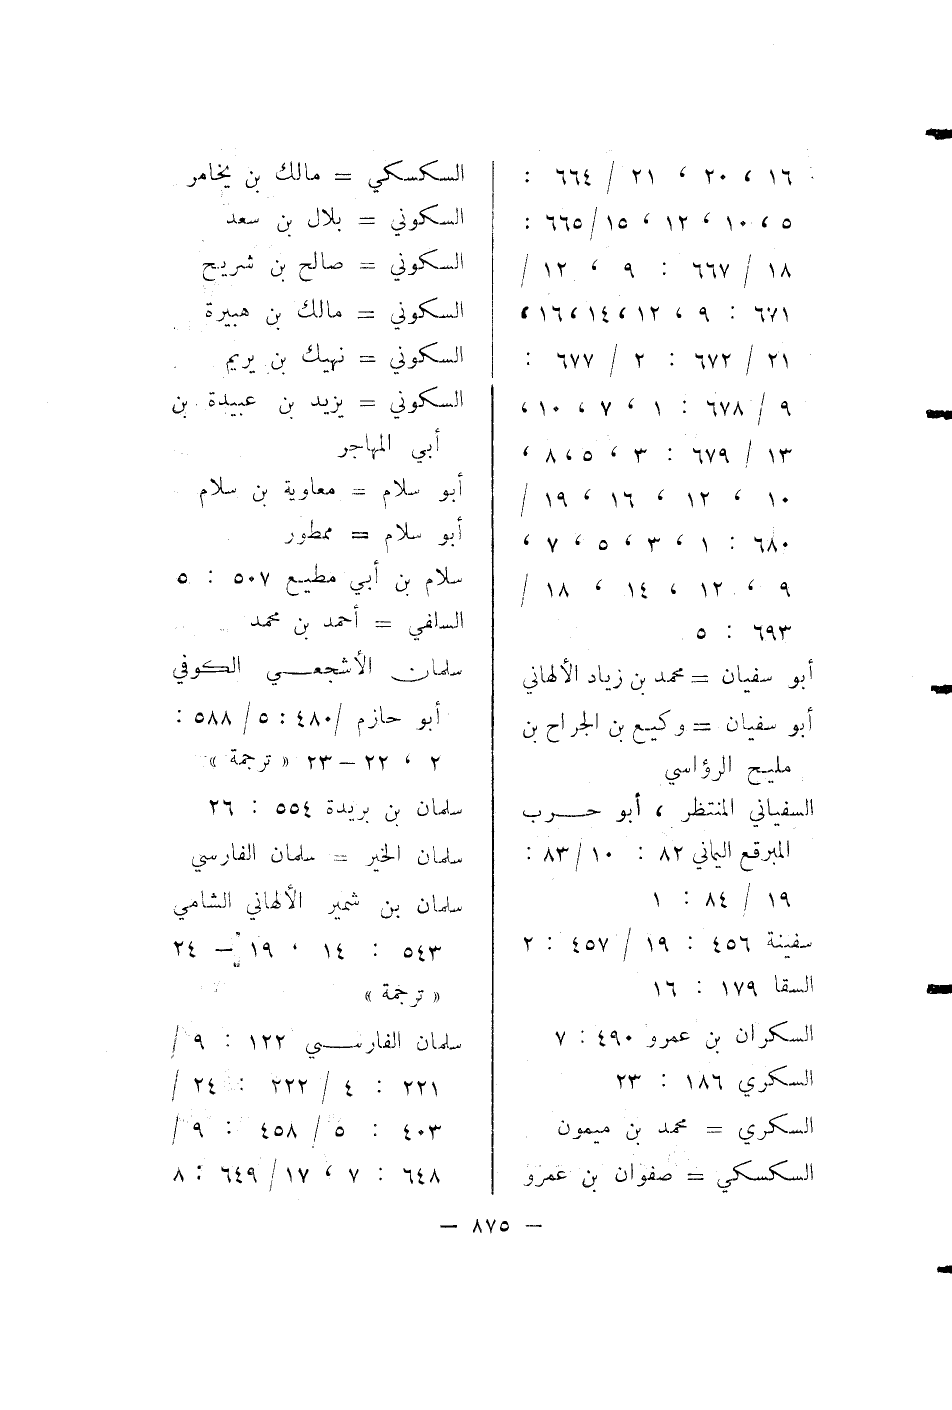 ١٦ ، ٢٠ ، ٢١ / ٦٦٤ :
٥ ، ١٠ ، ١٢ ، ١٥ / ٦٦٥ :
١٨ / ٦٦٧ : ٩ ، ١٢ /
٦٧١ : ٩ ، ١٢ ، ١٤ ، ١٦ ،
٢١ / ٦٧٢ : ٢ / ٦٧٧ :
٩ / ٦٧٨ : ١ ، ٧ ، ١٠ ،
١٣ / ٦٧٩ : ٣ ، ٥ ، ٨ ،
١٠ ، ١٢ ، ١٦ ، ١٩ /
٦٨٠ : ١ ، ٣ ، ٥ ، ٧ ،
٩ ، ١٢ ، ١٤ ، ١٨ /
٦٩٣ : ٥
أبو سفيان = محمد بن زياد الألهاني
أبو سفيان = وكيع بن الجراح بن
مليح الرؤاسي
السفياني المنتظر ، أبو حرب
المبرقع اليماني ٨٢ : ١٠ / ٨٣ :
١٩ / ٨٤ : ١
سفينة ٤٥٦ : ١٩ / ٤٥٧ : ٢
السقا ١٧٩ : ١٦
السكران بن عمرو ٤٩٠ : ٧
السكري ١٨٦ : ٢٣
السكري = محمد بن ميمون
السكسكي = صفوان بن عمرو
السكسكي = مالك بن يخامر
السكوني = بلال بن سعد
السكوني = صالح بن شريح
السكوني = مالك بن هبيرة
السكوني = نهيك بن يريم
السكوني = يزيد بن عبيدة بن
أبي المهاجر
أبو سلام = معاوية بن سلام
أبو سلام = ممطور
سلام بن أبي مطيع ٥٠٧ : ٥
السلفي = أحمد بن محمد
سلمان الأشجعي الكوفي
أبو حازم / ٤٨٠ : ٥ / ٥٨٨ :
٢ ، ٢٢ – ٢٣ « ترجمة »
سلمان بن بريدة ٥٥٤ : ٢٦
سلمان الخير = سلمان الفارسي
سلمان بن شمير الألهاني الشامي
٥٤٣ : ١٤ ، ١٩ – ٢٤
« ترجمة »
سلمان الفارسي ١٢٢ : ٩ /
٢٢١ : ٤ / ٢٢٢ : ٢٤ /
٤٠٣ : ٥ / ٤٥٨ : ٩ /
٦٤٨ : ٧ ، ١٧ / ٦٤٩ : ٨
– ٨٧٥ –